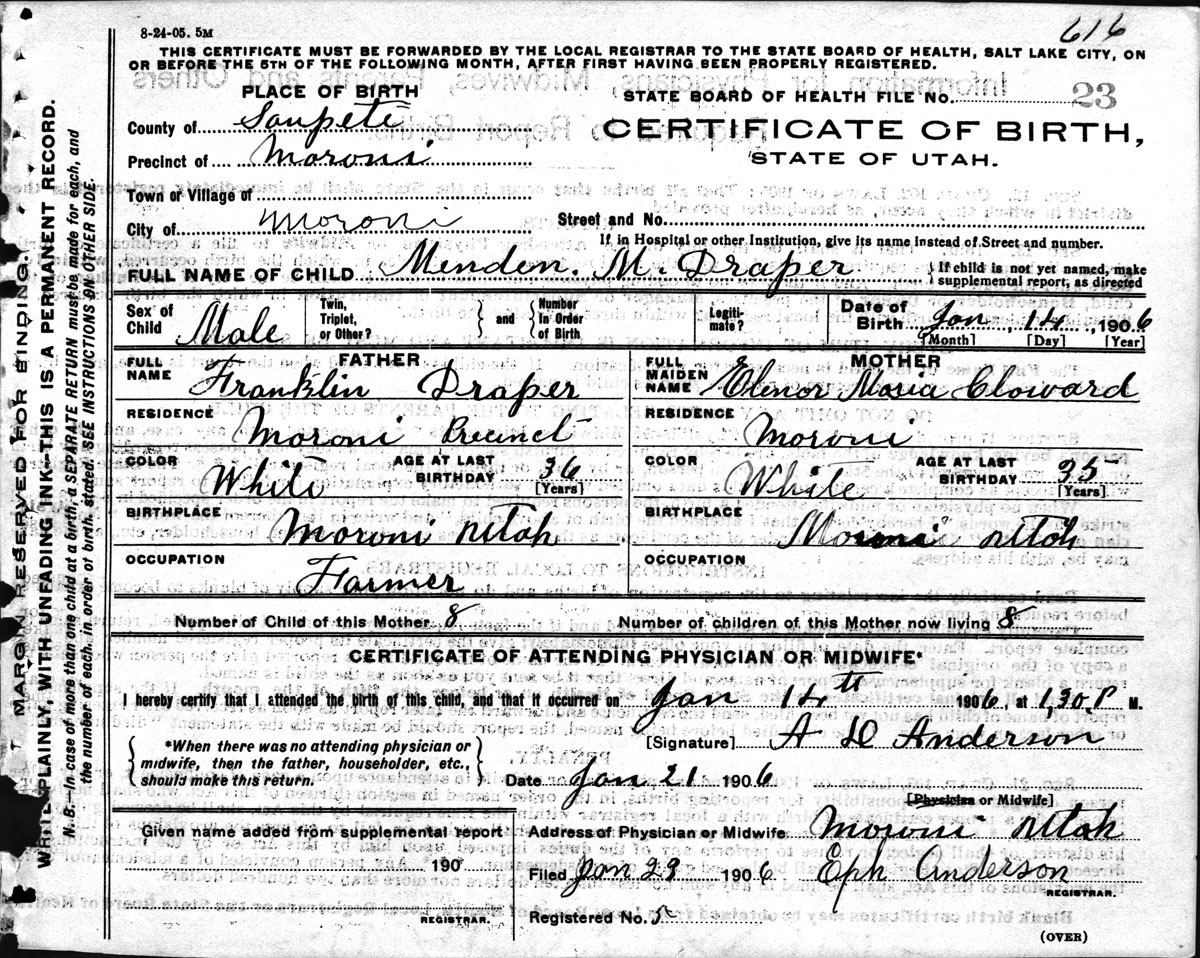 616
8-24-05. 5M
THIS CERTIFICATE MUST BE FORWARDED BY THE LOCAL REGISTRAR TO THE STATE BOARD OF HEALTH, SALT LAKE CITY, ON
OR BEFORE THE 5TH OF THE FOLLOWING MONTH, AFTER FIRST HAVING BEEN PROPERLY REGISTERED.
PLACE OF BIRTH
STATE BOARD OF HEALTH FILE NO. 23
County of Sanpete
CERTIFICATE OF BIRTH,
Precinct of Moroni
STATE OF UTAH.
Town or Village of
City of Moroni Street and No.
If in Hospital or other Institution, give its name instead of Street and number.
FULL NAME OF CHILD Menden. M. Draper { If child is not yet named, make
supplemental report, as directed
Sex of Child Male Twin, Triplet, or Other? } and { Number In Order of Birth Legiti-mate? Date of Birth Jan 14, 1906
[Month] [Day] [Year]
FATHER MOTHER
FULL NAME Franklin Draper FULL MAIDEN NAME Elenor Maria Cloward
RESIDENCE Moroni Precinct RESIDENCE Moroni
COLOR White AGE AT LAST BIRTHDAY 36 [Years] COLOR White AGE AT LAST BIRTHDAY 35 [Years]
BIRTHPLACE Moroni Utah BIRTHPLACE Moroni Utah
OCCUPATION Farmer OCCUPATION
Number of Child of this Mother 8 Number of children of this Mother now living 8
CERTIFICATE OF ATTENDING PHYSICIAN OR MIDWIFE*
I hereby certify that I attended the birth of this child, and that it occurred on Jan 14th 1906, at 1.30 P M.
*When there was no attending physician or midwife, then the father, householder, etc., should make this return.
[Signature] A D Anderson
Date Jan 21 1906
[Physician or Midwife]
Given name added from supplemental report
190
REGISTRAR.
Address of Physician or Midwife Moroni Utah
Filed Jan 29 1906 Eph Anderson
REGISTRAR.
Registered No. 5
(OVER)
MARGIN RESERVED FOR BINDING.
WRITE PLAINLY, WITH UNFADING INK—THIS IS A PERMANENT RECORD.
N. B.—In case of more than one child at a birth, a SEPARATE RETURN must be made for each, and
the number of each, in order of birth, stated. SEE INSTRUCTIONS ON OTHER SIDE.